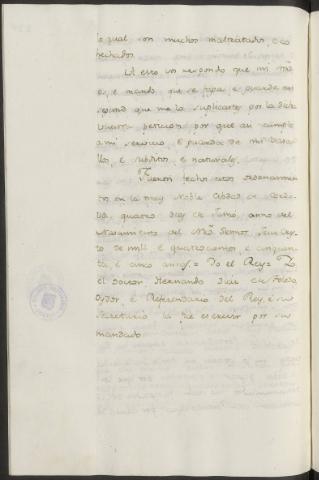 lo qual son muchos maltratados, e co
hechados.
A esto vos respondo que mi mrd
es, e mando, que se faga, e guarde en
segund que me lo suplicastes por la dicha
vuestra peticion, por que asi cumple
a mi servicio, e guarda de mis vasa
llos, e subditos, e naturales.
Fueron fechos estos ordenamien
tos en la muy Noble Cibdad de Cordo
va, quatro dias de Junio, anno del
Nascimiento del Nro Sennor Jesu Cris
to de mill e quatrocientos, e cinquen
ta, e cinco annos. = Yo el Rey = Yo
el Doctor Hernando Diaz de Toledo,
Oydor, e Referendario del Rey, e su
Secretario la fise escrevir por su
mandado.